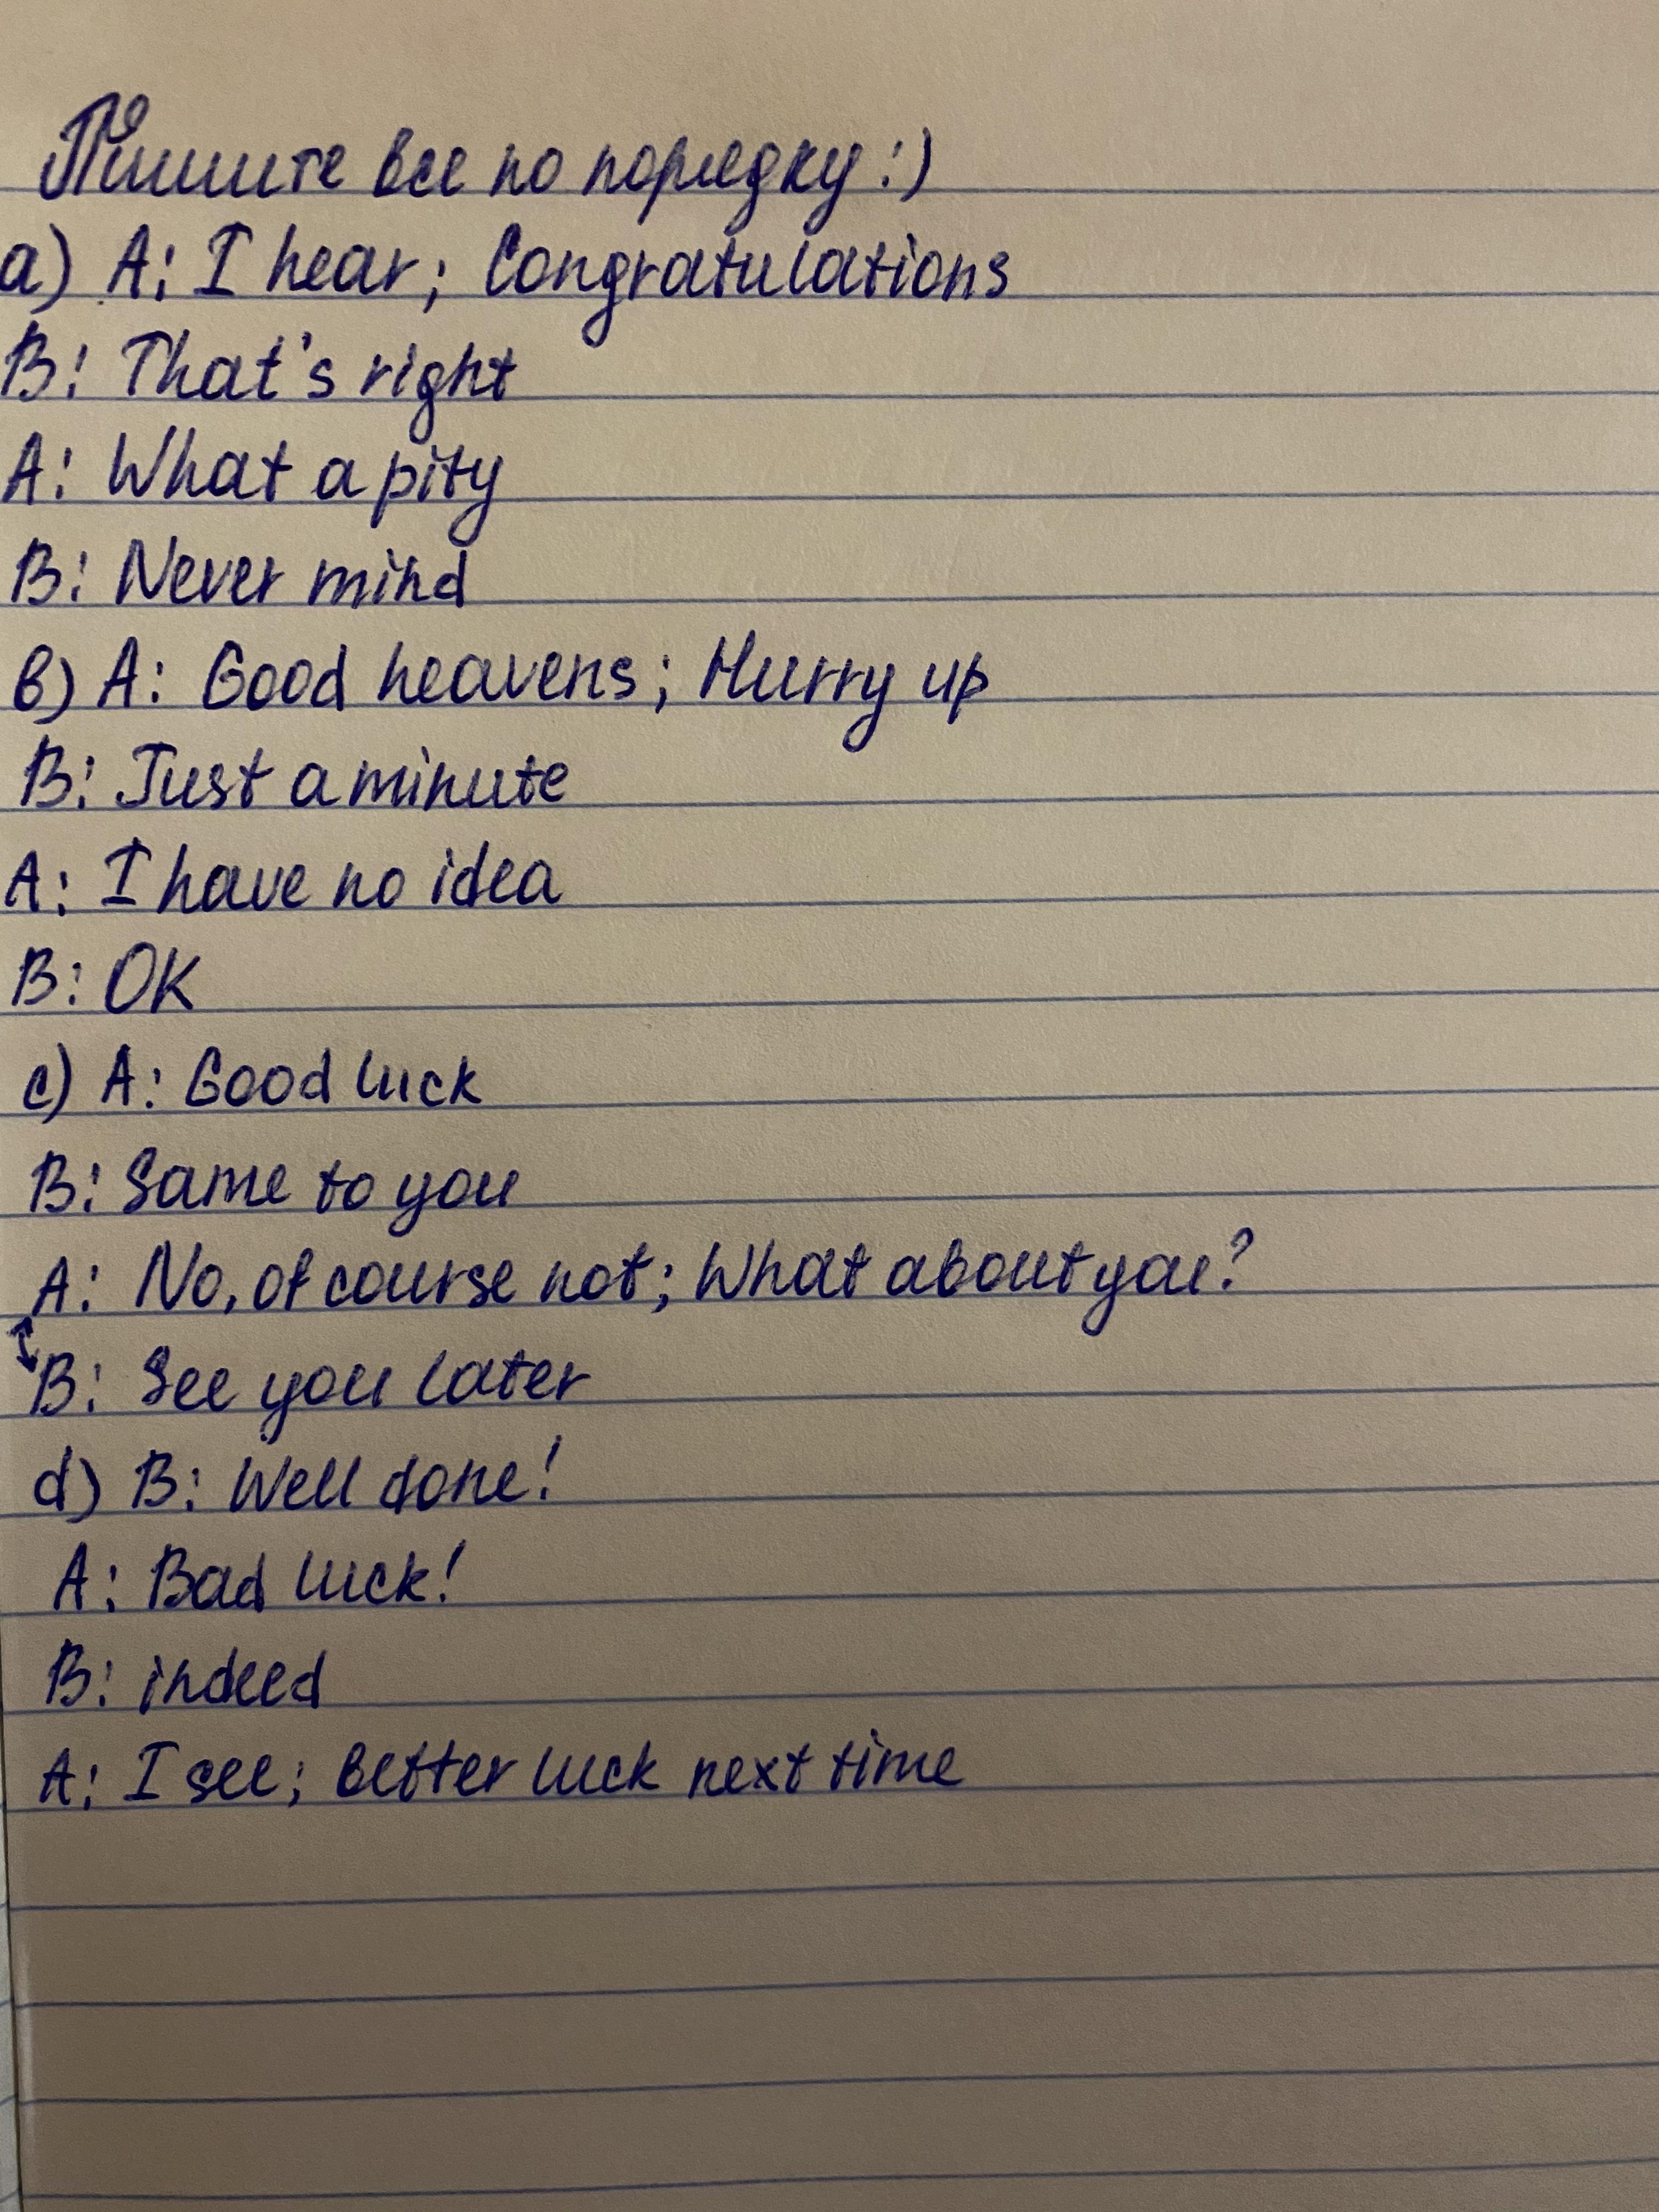 Пишите все по порядку :)
a) A: I hear; Congratulations
B: That's right
A: What a pity
B: Never mind
b) A: Good heavens; Hurry up
B: Just a minute
A: I have no idea
B: OK
c) A: Good luck
B: Same to you
A: No, of course not; What about you?
B: See you later
d) B: Well done!
A: Bad luck!
B: indeed
A: I see; better luck next time